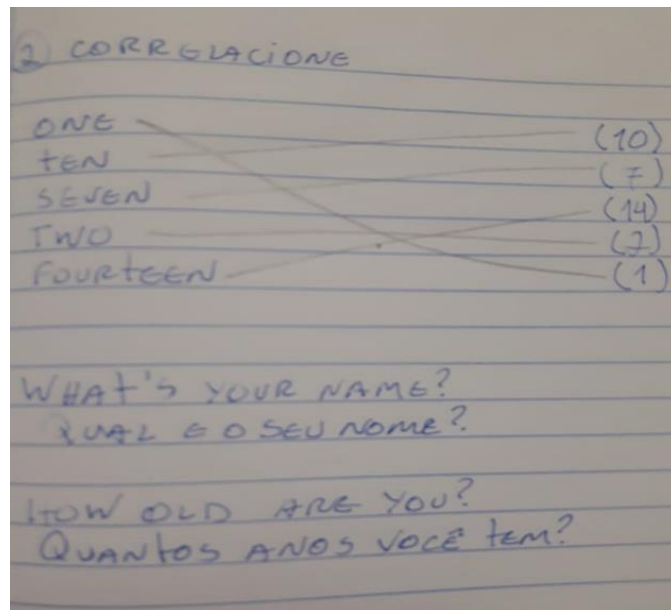 2 CORRELACIONE
ONE (10)
TEN (7)
SEVEN (14)
TWO (2)
FOURTEEN (1)
WHAT'S YOUR NAME?
QUAL E O SEU NOME?
HOW OLD ARE YOU?
QUANTOS ANOS VOCÊ TEM?